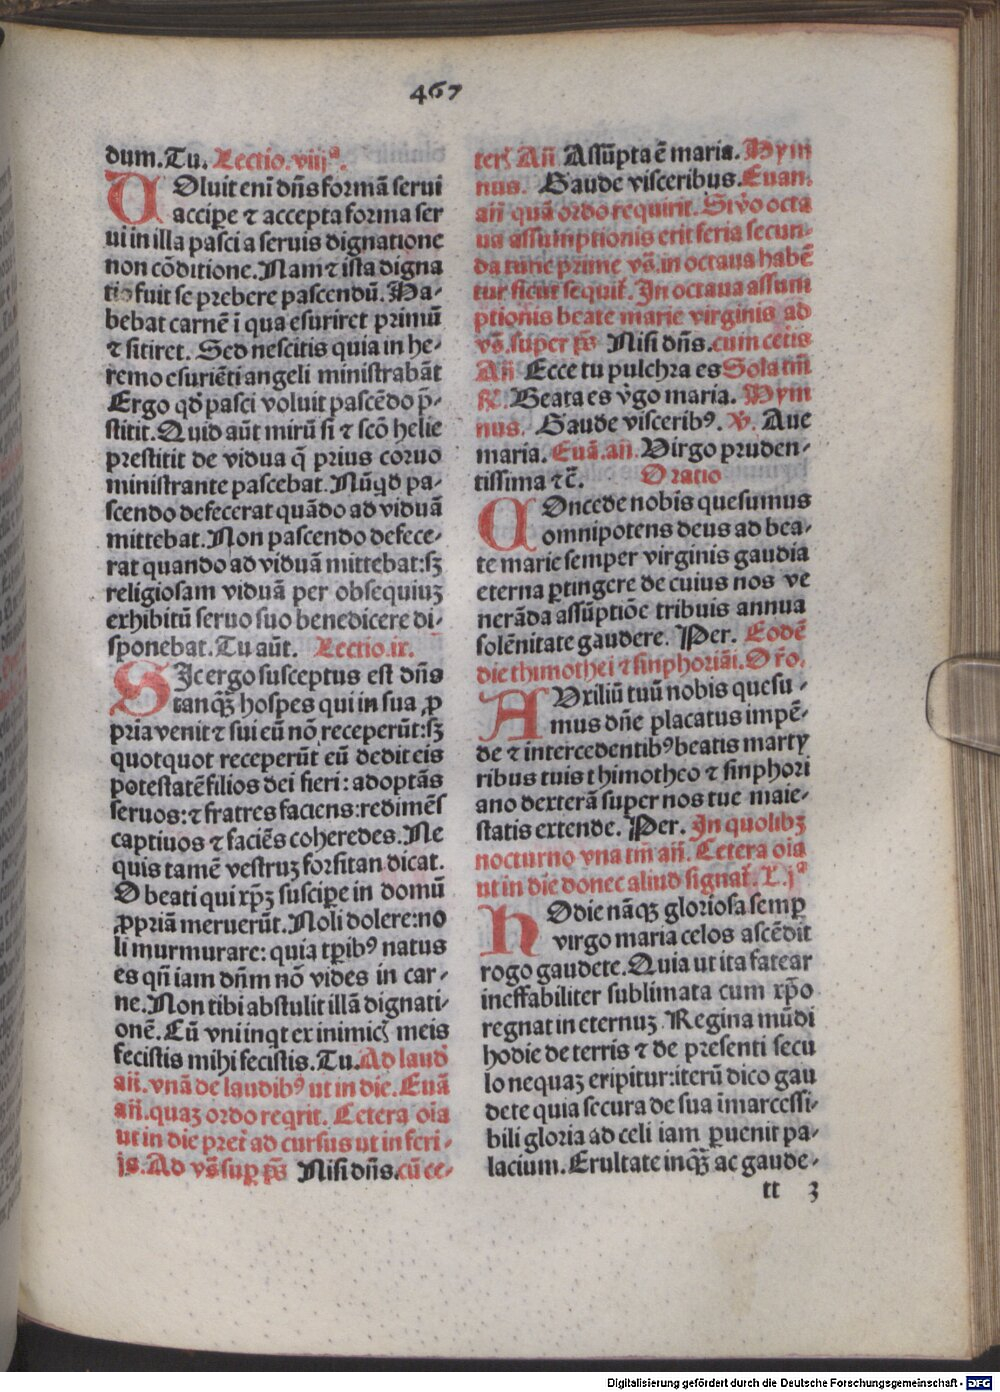 467
dum. Tu. Lectio. viijª.
UOluit eni dn̄s formā serui
accipe ⁊ accepta forma ser
ui in illa pasci a seruis dignatione
non cōditione. Nam ⁊ ista digna
tio fuit se prebere pascendū. Ha-
bebat carnē ī qua esuriret primū
⁊ sitiret. Sed nescitis quia in he-
remo esuriēti angeli ministrabāt
Ergo qd̄ pasci voluit pascēdo p̄-
stitit. Quid aūt mirū si ⁊ scō helie
prestitit de vidua q̄ prius coruo
ministrante pascebat. Nūqd pa-
scendo defecerat quādo ad viduā
mittebat. Non pascendo defece-
rat quando ad viduā mittebat: sꝫ
religiosam viduā per obsequiuꝫ
exhibitū seruo suo benedicere di-
sponebat. Tu aūt. Lectio. ix.
SIc ergo susceptus est dn̄s
tanqꝫ hospes qui in sua ꝓ
pria venit ⁊ sui eū nō receperūt: sꝫ
quotquot receperūt eū dedit eis
potestatē filios dei fieri: adoptās
seruos: ⁊ fratres faciens: redimēs
captiuos ⁊ faciēs coheredes. Ne
quis tamē vestruꝫ forsitan dicat.
O beati qui xp̄ꝫ suscipe in domū
ꝓpriā meruerūt. Noli dolere: no
li murmurare: quia tp̄ibꝰ natus
es qn̄ iam dn̄m nō vides in car-
ne. Non tibi abstulit illā dignati-
onē. Cū vni inqt ex inimicꝭ meis
fecistis mihi fecistis. Tu. Ad laud̄
añ. vnā de laudibꝰ ut in die. Euā
añ. quaꝫ ordo reqrit. Cetera oīa
ut in die pret̄ ad cursus ut in feri-
js. Ad vs̄ sup ps̄ Nisi dn̄s. cū ce-
terꝭ Añ Assūpta ē maria. Hym
nus. Gaude visceribus. Euan.
añ quā ordo requirit. Si v̄o octa
ua assumptionis erit feria secun-
da tunc prime vs̄. in octaua habē
tur sicut sequit̄. In octaua assum
ptionis beate marie virginis ad
vs̄. super ps̄ Nisi dn̄s. cum cetis
Añ Ecce tu pulchra es Sola tm̄
℟. Beata es v̄go maria. Hym
nus. Gaude visceribꝰ. ℣. Aue
maria. Euā. añ. Virgo pruden-
tissima ⁊c̄. Oratio
COncede nobis quesumus
omnipotens deus ad bea-
te marie semper virginis gaudia
eterna ꝑtingere de cuius nos ve
nerāda assūptiōe tribuis annua
solēnitate gaudere. Per. Eodē
die thimothei ⁊ sinphoriāi. Or̄o.
AUxiliū tuū nobis quesu-
mus dn̄e placatus impē-
de ⁊ intercedentibꝰ beatis marty
ribus tuis thimotheo ⁊ sinphori
ano dexterā super nos tue maie-
statis extende. Per. In quolibꝫ
nocturno vna tm̄ añ. Cetera oīa
ut in die donec aliud signat̄. L. jª
HOdie nāqꝫ gloriosa semꝑ
virgo maria celos ascēdit
rogo gaudete. Quia ut ita fatear
ineffabiliter sublimata cum xp̄o
regnat in eternuꝫ. Regina mūdi
hodie de terris ⁊ de presenti secu
lo nequaꝫ eripitur: iterū dico gau
dete quia secura de sua īmarcessi-
bili gloria ad celi iam ꝑuenit pa-
lacium. Exultate inqꝫ ac gaude-
tt 3
Digitalisierung gefördert durch die Deutsche Forschungsgemeinschaft - DFG